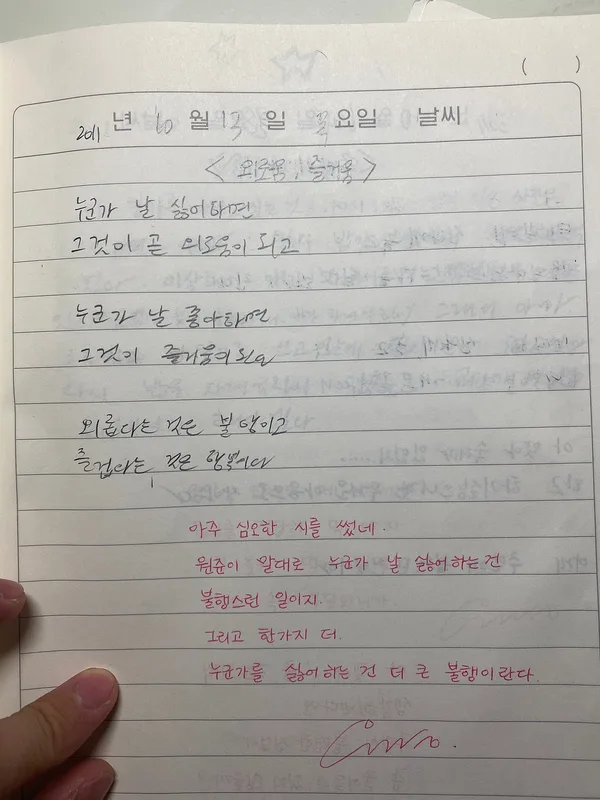 ( )
2011 년 10 월 13 일 목요일 날씨
< 외로움, 즐거움 >
누군가 날 싫어하면
그것이 곧 외로움이 되고
누군가 날 좋아하면
그것이 즐거움이 되고
외롭다는 것은 불행이고
즐겁다는 것은 행복이다
아주 심오한 시를 썼네.
원준이 말대로 누군가 날 싫어하는 건
불행스런 일이지.
그리고 한가지 더.
누군가를 싫어하는 건 더 큰 불행이란다.